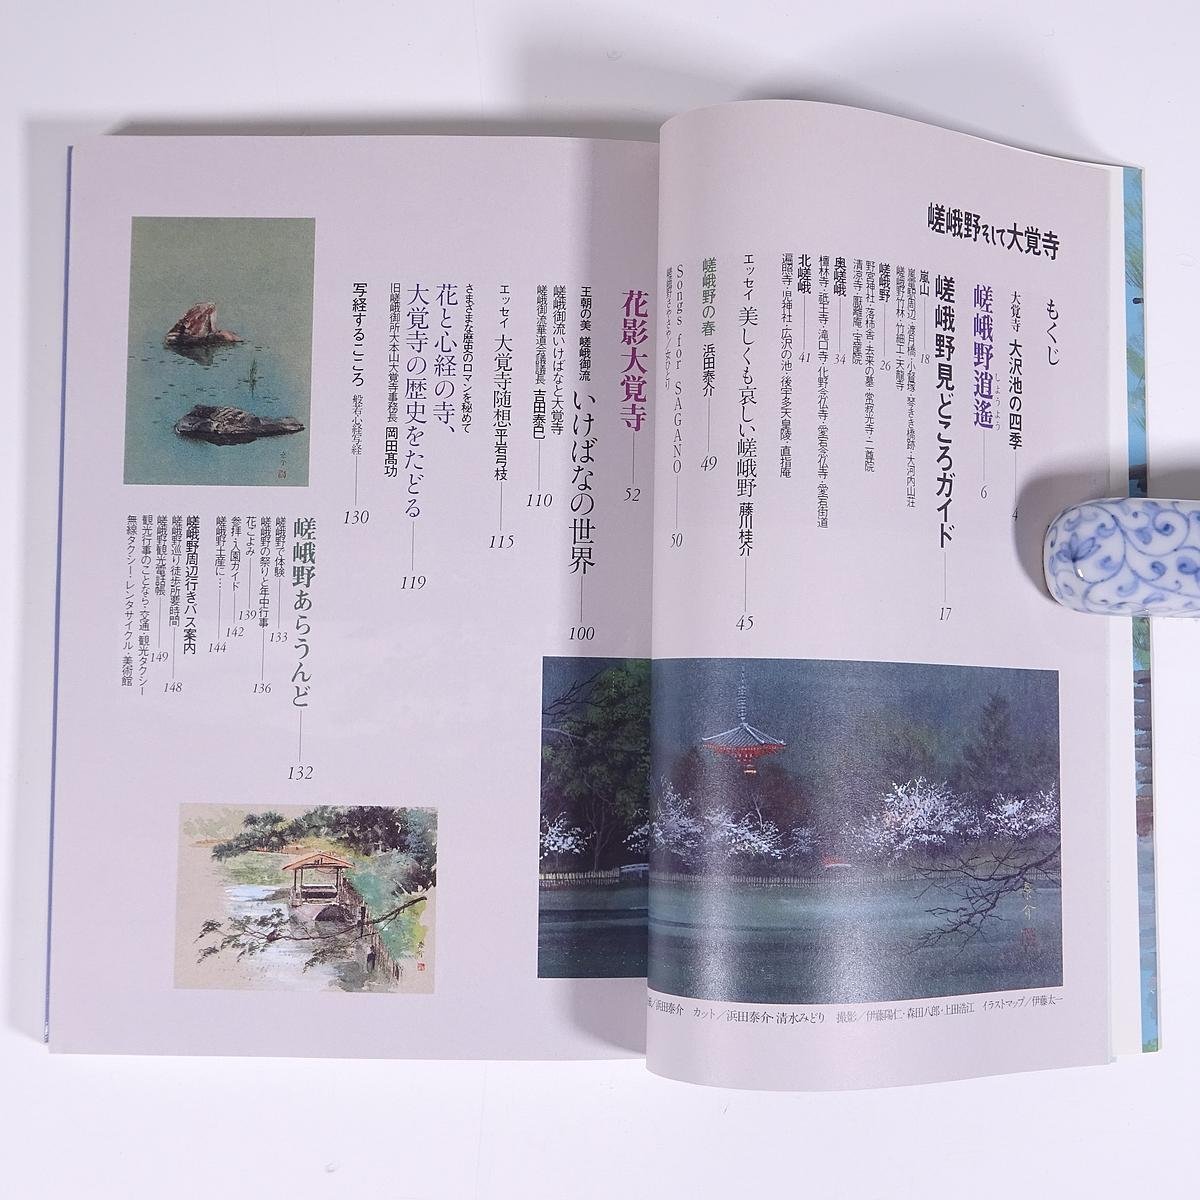 嵯峨野そして大覚寺
もくじ
大覚寺 大沢池の四季 4
嵯峨野逍遙 6
しょうよう
嵯峨野見どころガイド 17
嵐山 18
嵐電駅周辺・渡月橋・小督塚・琴きき橋跡・大河内山荘
嵯峨野竹林・竹細工・天龍寺
嵯峨野 26
野宮神社・落柿舎・去来の墓・常寂光寺・二尊院
清凉寺・厭離庵・宝筐院
奥嵯峨 34
檀林寺・祇王寺・滝口寺・化野念仏寺・愛宕念仏寺・愛宕街道
北嵯峨 41
遍照寺・児神社・広沢の池・後宇多天皇陵・直指庵
エッセイ 美しくも哀しい嵯峨野 藤川桂介 45
嵯峨野の春 浜田泰介 49
Songs for SAGANO 50
花影大覚寺 52
王朝の美 嵯峨御流 いけばなの世界 100
嵯峨御流いけばなと大覚寺
嵯峨御流華道会議議長 吉田泰巳 110
エッセイ 大覚寺随想 平岩弓枝 115
さまざまな歴史のロマンを秘めて
花と心経の寺、
大覚寺の歴史をたどる 119
旧嵯峨御所大本山大覚寺事務長 岡田高功
写経するこころ 般若心経写経 130
嵯峨野あらうんど 132
嵯峨野で体験 133
嵯峨野の祭りと年中行事 136
花ごよみ 139
参拝・入園ガイド 142
嵯峨野土産に… 144
嵯峨野周辺行きバス案内
嵯峨野巡り徒歩所要時間 148
嵯峨野観光電話帳 149
観光行事のことなら・交通・観光タクシー
無線タクシー・レンタサイクル・美術館
／浜田泰介 カット／浜田泰介・清水みどり 撮影／伊藤陽仁・森田八郎・上田浩江 イラストマップ／伊藤太一
泰介